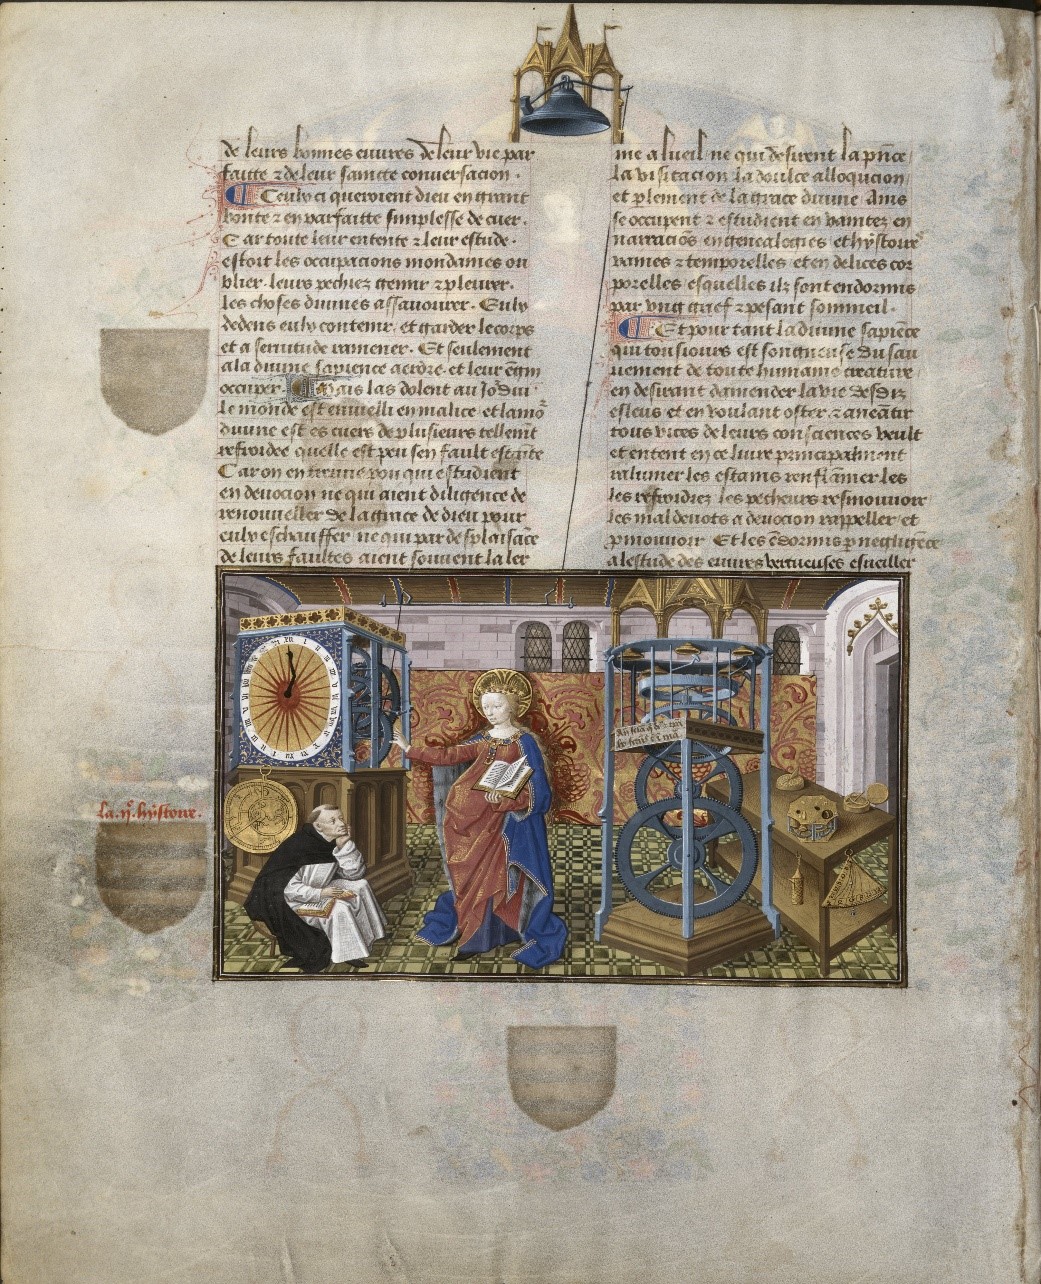 de leurs bonnes euures de leur vie par
faitte ⁊ de leur saincte conuersacion ·
Ceulx ci queroient dieu en grant
bonte ⁊ en parfaitte simplesse de cuer ·
Car toute leur entente ⁊ leur estude ·
estoit les occupacions mondaines ou
blier · leurs pechiez gemir ⁊ pleurer ·
les choses diuines assauourer · Eulx
dedens eulx contenir · et garder le corps
et a seruitude ramener · Et seulement
a la diuine sapience aerdre · et leur
occuper · Mais las dolent au
le monde est enuielli en malice · et lamo᷑
diuine est es cuers de plusieurs tellemt̄
refroidee quelle est peu sen fault
Car on en treuue pou qui estudient
en deuocion ne qui aient diligence de
renouueller de la grace de dieu pour
eulx eschauffer ne qui par desplaisāce
de leurs faultes aient souuent la ler
me a lueil ne qui desirent la
la visitacion la doulce allocucion
et plement de la grace diuine Ains
se occupent ⁊ estudient en vanitez en
narraciōs en genealogies et hystoires
vaines ⁊ temporelles et en delices cor
porelles esquelles ilz sont endormis
par vng grief ⁊ pesant sommeil ·
Et pour tant la diuine sapiēce
qui tousiours est songneuse du sau
uement de toute humaine creature
en desirant damender la vie desdiz
esleus et en voulant oster ⁊ aneātir
tous vices de leurs consciences veult
et entent en ce liure principalment
ralumer les estains renflāmer les
les refroidiez les pecheurs resmouuoir
les mal deuots a deuocion rappeller et
pmouuoir Et les ēdormis p negligēce
a lestude des euures vertueuses esueiller
La .ij͛. hystoire.